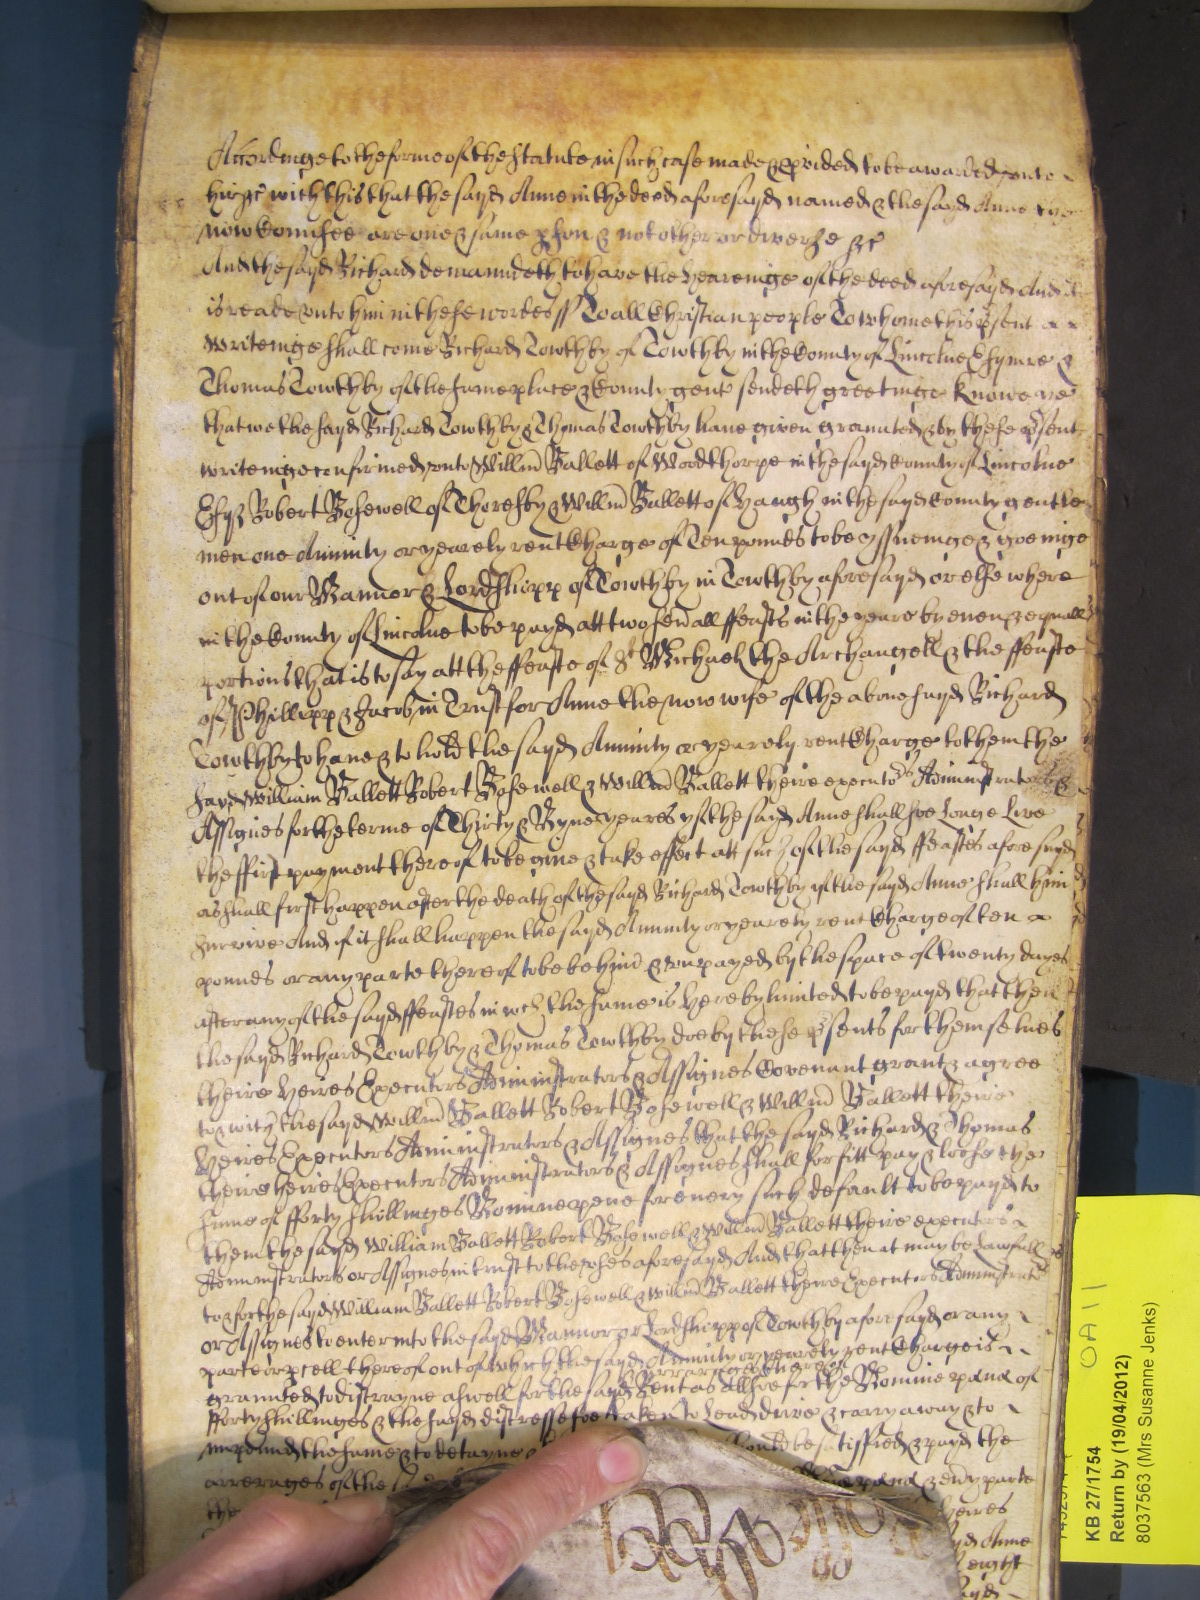 Accordinge to the forme of the Statute in such case made & pvided to be awarded unto
hir &c with this that the sayd Anne in the deed aforesayd named & the sayd Anne
now Conusee are one & same pson & not other or diverse &c
And the sayd Richard demaundeth to have the heareinge of the deed aforesayd And it
is reade unto him in these wordes ss To all Christian people To whome this psent
writeinge shall come Richard Towthby of Towthby in the County of Lincolne Esquire &
Thomas Towthby of the same place & County gent sendeth greetinge Knowe yee
that we the sayd Richard Towthby & Thomas Towthby have given graunted & by these psent
writeinge confirmed unto Willm Ballett of Woodthorpe in the sayd County of Lincolne
Esqz Robert Bosewell of Thoresby & Willm Ballett of Haugh in the sayd County gentle
men one Annuity or yearely rent Charge of Ten pounds to be yssueinge & goeinge
out of our Mannor & Lordshipp of Towthby in Towthby aforesayd or elsewhere
in the County of Lincolne to be payd att two severall ffeasts in the yeare by even & equall
portions that is to say att the ffeaste of St Michael the Archangell & the ffeaste
of Phillipp & Jacob in Trust for Anne the now wife of the abovesayd Richard
Towthby to have & to hold the sayd Annuity or yearely rent Charge to them the
sayd William Ballett Robert Bosewell & Willm Ballett theire executors Administrators &
Assignes for the terme of Thirty & Nyne yeares yf the sayd Anne shall soe Longe Live
the ffirst payment thereof to begine & take effect att such of the sayd ffeastes aforesayd
as shall first happen after the death of the sayd Richard Towthby yf the sayd Anne shall him
survive And if it shall happen the sayd Annuity or yearely rent Charge of ten
pounds or any parte thereof to be behind & unpayed by the space of twenty dayes
after any of the sayd ffeastes in wch the same is hereby limited to be payd that then
the sayd Richard Towthby & Thomas Towthby doe by these psents for themselves
theire heires Executors Administrators & Assignes Covenant grant & agree
to & with the sayd Willm Ballett Robert Bosewell & Willm Ballett theire
heires Executors Administrators & Assignes that the sayd Richard & Thomas
theire heires Executors Administrators & Assignes shall forfitt pay & loose the
sume of fforty shillinges Nomine pene for every such default to be payd to
them the sayd William Ballett Robert Bosewell & Willm Ballett theire executors
Administrators or Assignes in trust to the uses aforesayd And that then it may be Lawfull
to & for the sayd William Ballett Robert Bosewell & Willm Ballett theire Executors Administrators
or Assignes to enter into the sayd Mannor or Lordshipp of Towthby aforesayd or any
parte or pcell thereof out of which the sayd Annuity or yearely rent Charge is
arrerages thereof
graunted to distrayne aswell for the sayd Rent as allsoe for the Nomine pena of
fforty shillinges & the sayd distresse soe taken to Lead drive & carry away & to
impound the same & to detayne should be satisfied & payd the
arrerages of the pena & every parte
the heires
Anne
eight
sayd
OA 11
KB 27/1754
Return by (19/04/2012)
8037563 (Mrs Susanne Jenks)